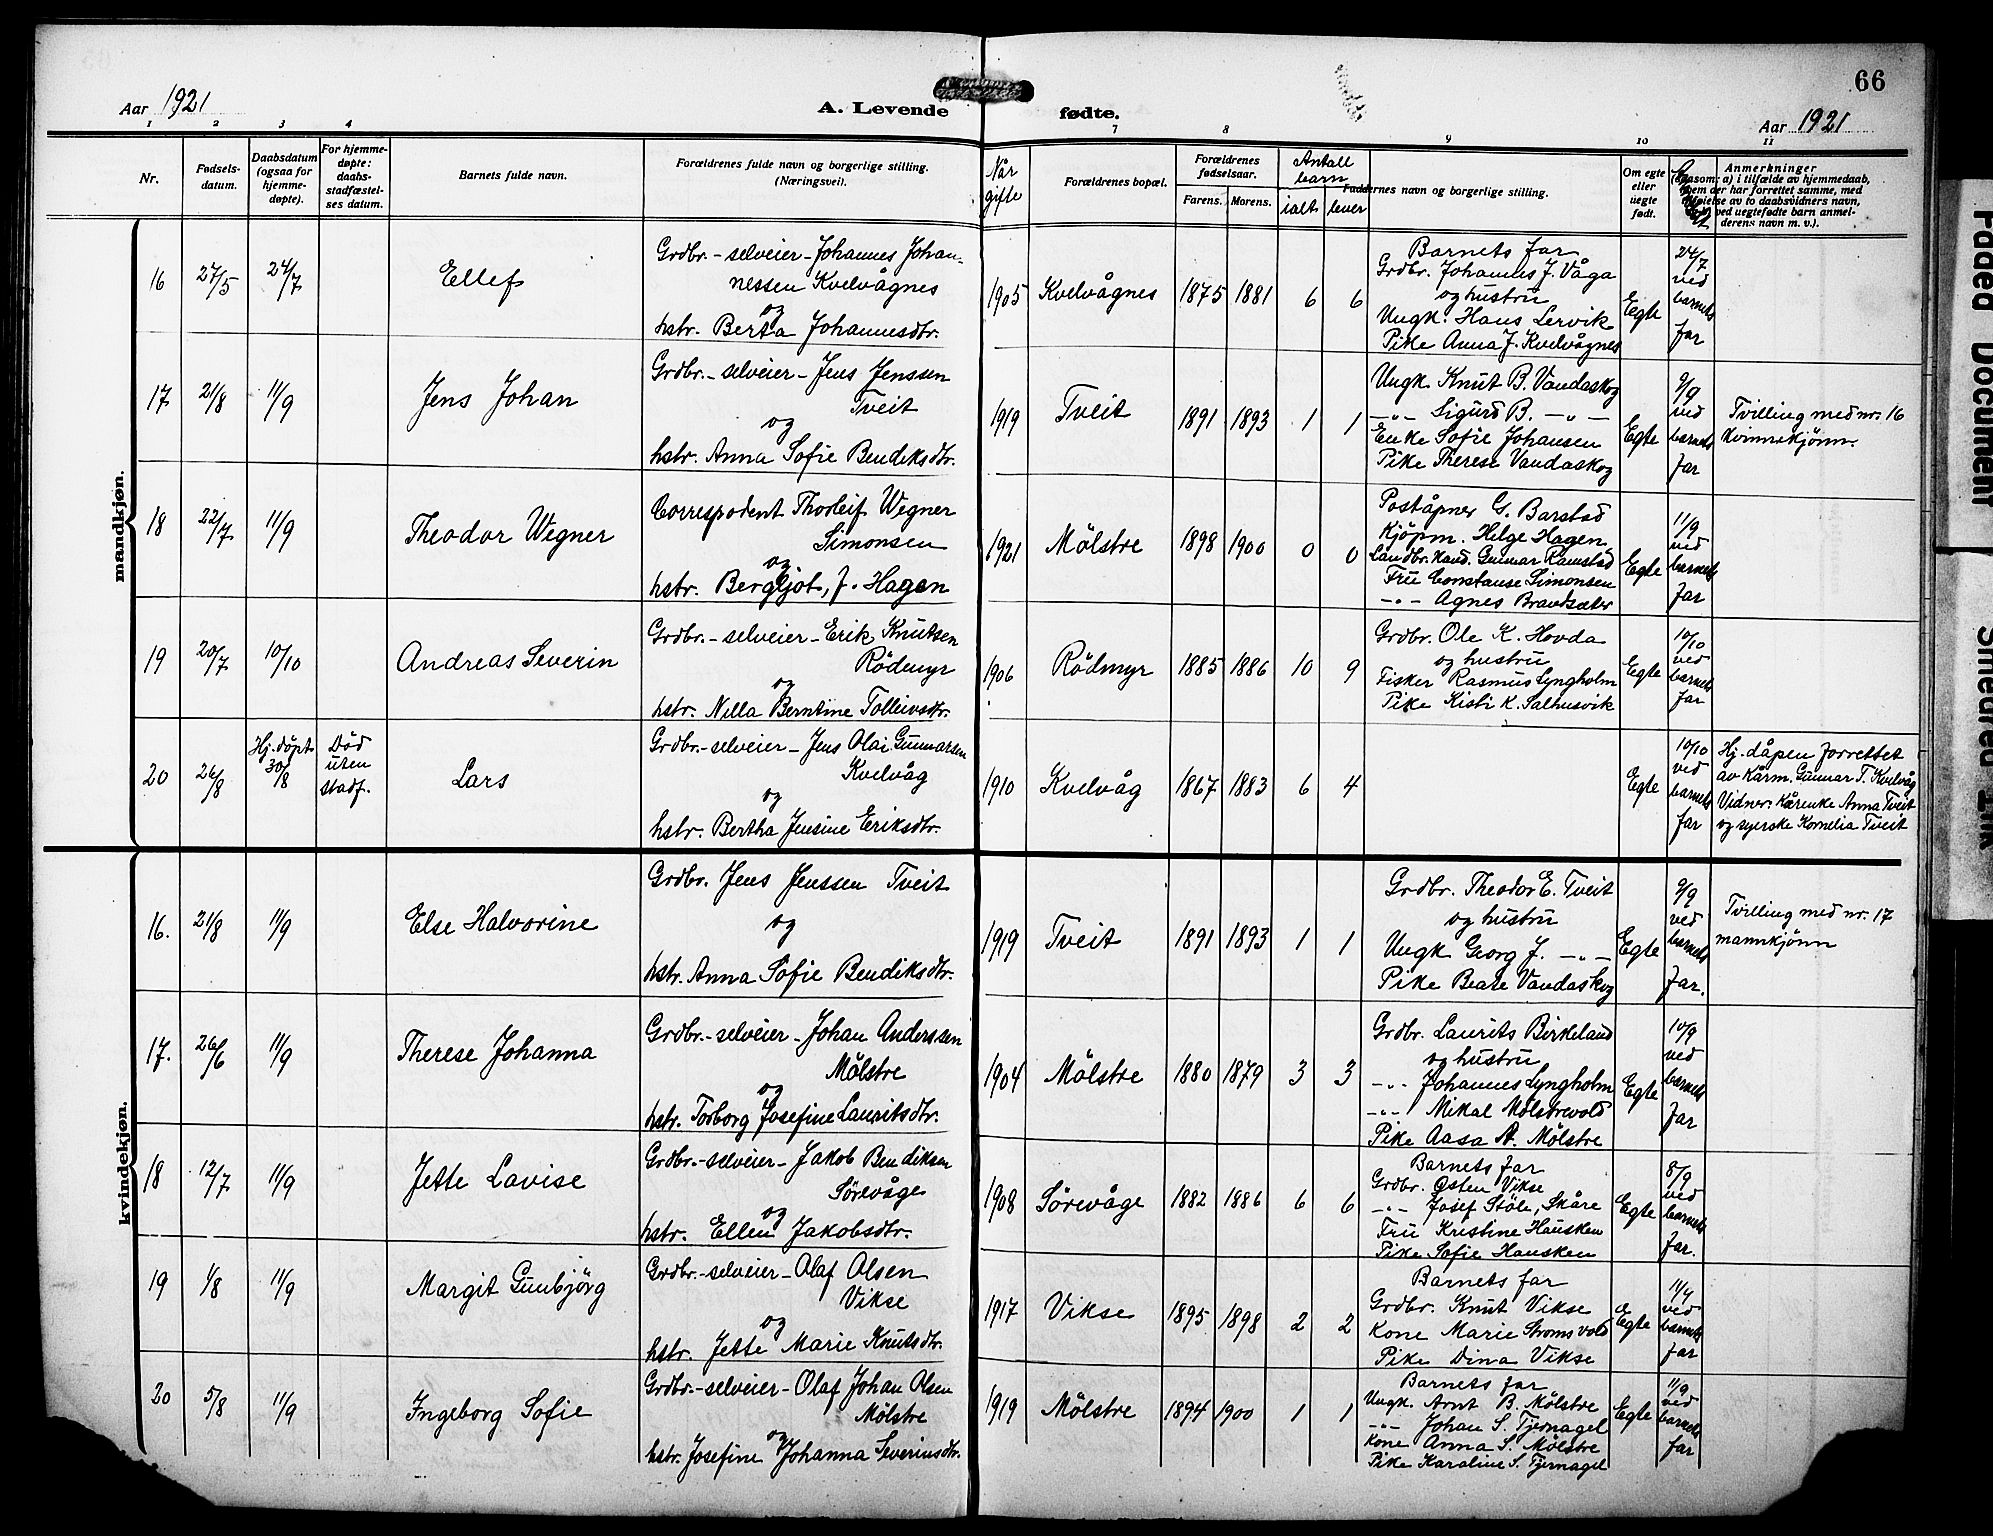 66
Aar 1921
A. Levende
fødte.
Aar 1921
1 2 3 4 7 8 9 10 11
Nr.
Fødsels-
datum.
Daabsdatum
(ogsaa for
hjemme-
døpte).
For hjemme-
døpte:
daabs-
stadfæstel-
ses datum.
Barnets fulde navn.
Forældrenes fulde navn og borgerlige stilling.
(Næringsvei).
Når
gifte
Forældrenes bopæl.
Forældrenes
fødselsaar.
Farens. Morens.
Antall
barn
ialt lever
Faddernes navn og borgerlige stilling.
Om egte
eller
uegte
født.
Anmerkninger
(saasom: a) i tilfælde av hjemmedaab,
hvem der har forrettet samme, med
tilføielse av to daabsvidners navn,
ved uegtefødte barn anmel-
derens navn m. v.).
mandkjøn.
16
27/5
24/7
Ellef
Grdbr.-selveier-Johannes Johan-
nessen Kvelvågnes
og
hstr. Berta Johannesdtr.
1905
Kvelvågnes
1875 1881 6 6
Barnets far
Grdbr. Johannes J. Våga
og hustru
Ungk. Hans Lervik
Pike Anna J. Kvelvågnes
Egte
24/7
ved
barnets
far
17
21/8
11/9
Jens Johan
Grdbr.-selveier-Jens Jenssen
Tveit
og
hstr. Anna Sofie Bendiksdtr.
1919
Tveit
1891 1893 1 1
Ungk Knut B. Vandaskog
-"- Sigurd B. -"-
Enke Sofie Johansen
Pike Therese Vandaskog
Egte
9/9
ved
barnets
far
Tvilling med nr. 16
kvinnekjønn.
18
22/7
11/9
Theodor Wegner
Correspodent Thorleif Wegner
Simonsen
og
hstr. Bergljot, J. Hagen
1921
Mølstre
1898 1900 0 0
Poståpner G. Barstad
Kjøpm. Helge Hagen
Landbr. Kand. Gunnar Ramstad
Fru Constanse Simonsen
-"- Agnes Brandsæter
Egte
11/9
ved
barnets
far
19
20/7
10/10
Andreas Severin
Grdbr.-selveier-Erik Knutsen
Rødmyr
og
hstr. Nilla Berntine Tolleivsdtr.
1906
Rødmyr
1885 1886 10 9
Grdbr. Ole K. Hovda
og hustru
Fisker Rasmus Lyngholm
Pike Kisti K. Salhusvik
Egte
10/10
ved
barnets
far
20
26/8
Hj. døpt
30/8
Død
uten
stadf.
Lars
Grdbr.-selveier-Jens Olai Gunnarsen
Kvelvåg
og
hstr. Bertha Jensine Eriksdtr.
1910
Kvelvåg
1867 1883 6 4
Egte
10/10
ved
barnets
far
Hj. dåpen forrettet
av Kårm. Gunnar T. Kvelvåg
Vidner: Kårenke Anna Tveit
og syerske Kornelia Tveit
kvindekjøn.
16.
21/8
11/9
Else Halvorine
Grdbr. Jens Jenssen Tveit
og
hstr. Anna Sofie Bendiksdtr.
1919
Tveit
1891 1893 1 1
Grdbr. Theodor E. Tveit
og hustru
Ungk Georg J. -"-
Pike Beate Vandaskog
Egte
9/9
ved
barnets
far.
Tvilling med nr. 17
mannkjønn
17.
26/6
11/9
Therese Johanna
Grdbr.-selveier-Johan Anderssen
Mølstre
og
hstr. Torborg Josefine Lauritsdtr.
1904
Mølstre
1880 1879 3 3
Grdbr. Laurits Birkeland
og hustru
-"- Johannes Lyngholm
-"- Mikal Mølstrevold
Pike Aasa A. Mølstre
Egte
10/9
ved
barnets
far
18
12/7
11/9
Jette Lavise
Grdbr.-selveier-Jakob Bendiksen
Sørevåge
og
hstr. Ellen Jakobsdtr.
1908
Sørevåge
1882 1886 6 6
Barnets far
Grdbr. Østen Vikse
-"- Josef Støle, Skåre
Fru Kristine Hausken
Pike Sofie Hausken
Egte
8/9
ved
barnets
far.
19
1/8
11/9
Margit Gunbjørg
Grdbr.-selveier-Olaf Olsen
Vikse
og
hstr. Jette Marie Knutsdtr.
1917
Vikse
1895 1898 2 2
Barnets far
Grdbr. Knut Vikse
Kone Marie Strømsvold
Pike Dina Vikse
Egte
ved
barnets
far
20
5/8
11/9
Ingeborg Sofie
Grdbr.-selveier-Olaf Johan Olsen
Mølstre
og
hstr. Josefine Johanna Severinsdtr.
1919
Mølstre
1894 1900 1 1
Barnets far
Ungk. Arnt B. Mølstre
-"- Johan S. Tjernagel
Kone Anna S. Mølstre
Pike Karoline S. Tjernagel
Egte
11/9
ved
barnets
far
Faded Document
Smeared Ink